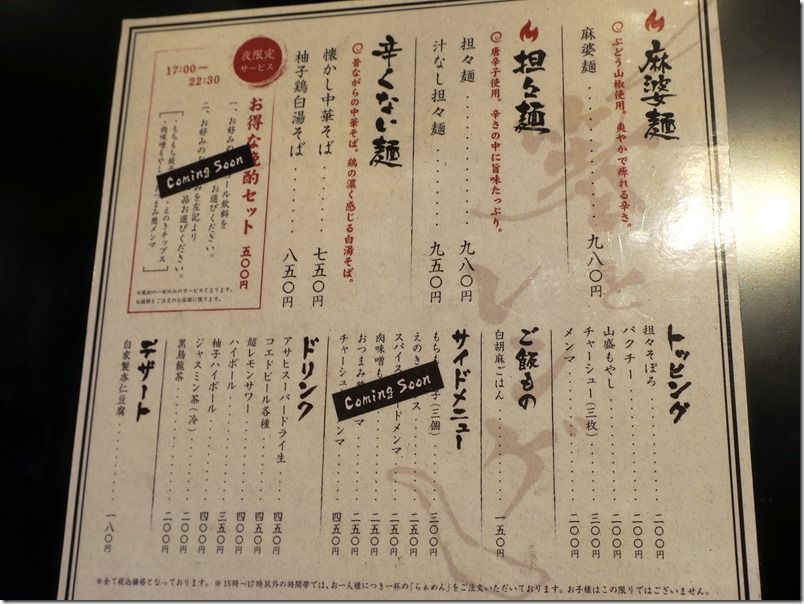 麻婆麺
ぶどう山椒使用。爽やかで痺れる辛さ。
麻婆麺 九八〇円
担々麺
唐辛子使用。辛さの中に旨味たっぷり。
担々麺 九八〇円
汁なし担々麺 九五〇円
辛くない麺
昔ながらの中華そば。鶏の濃く感じる白湯そば。
懐かし中華そば 七五〇円
柚子鶏白湯そば 八五〇円
夜限定
サービス
17:00〜
22:30
お得な晩酌セット 五〇〇円
一、お好みの
ール飲料を
お選びください。
二、お好みのお
みを左記より
品お選びください。
・もちもち餃
・えのきチップス
・肉味噌もやし
つまみ葱メンマ
Coming Soon
トッピング
担々そぼろ 二〇〇円
パクチー 二〇〇円
山盛もやし 二〇〇円
チャーシュー(三枚) 三〇〇円
メンマ 二〇〇円
ご飯もの
白胡麻ごはん 一五〇円
サイドメニュー
もち
子(三個) 三〇〇円
えのき
ス
スパイス
ードメンマ
肉味噌も
おつまみ
マ
チャーシュ
ンマ 四五〇円
Coming Soon
ドリンク
アサヒスーパードライ生 四五〇円
コエドビール各種
超レモンサワー 四五〇円
ハイボール 四〇〇円
柚子ハイボール
ジャスミン茶(冷) 二〇〇円
黒烏龍茶 二〇〇円
デザート
自家製杏仁豆腐 一八〇円
※全て税込価格となっております。 ※15時〜17時以外の時間帯では、お一人様につき一杯の「らぁめん」をご注文いただいております。お子様はこの限りではございません。